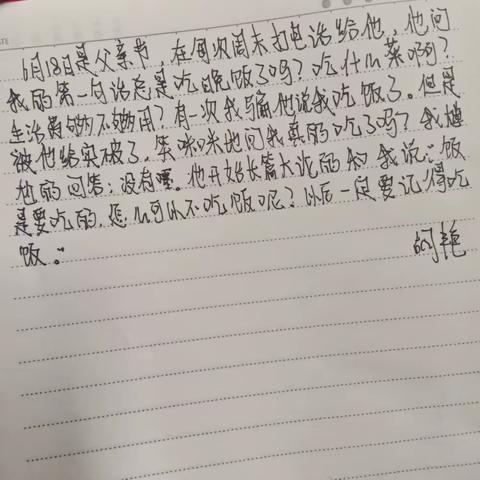 6月18日是父亲节,在每次周末打电话给他,他问
我的第一句话总是吃晚饭了吗?吃什么菜啊?
生活费够不够用?有一次我骗他说我吃饭了。但是
被他给实破了,笑咪咪地问我真的吃了吗?我尴
尬的回答:没有嘿。他开始长篇大论的和我说:饭
是要吃的,怎么可以不吃饭呢?以后一定要记得吃
饭。